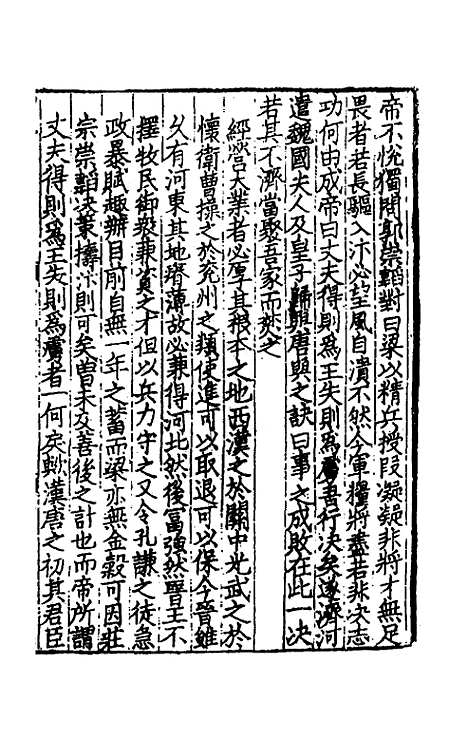 帝不悅獨問郭崇韜對曰梁以精兵授段凝凝非將才無足
畏者若長驅入汴必望風自潰不然今軍糧將盡若非決志
功何由成帝曰丈夫得則為王失則為虜吾行決矣遂濟河
遣魏國夫人及皇子歸興唐與之訣曰事之成敗在此一決
若其不濟當聚吾家而焚之
經營大業者必厚其根本之地西漢之於關中光武之於
懷衛曹操之於兗州之類使進可以取退可以保今晉雖
久有河東其地瘠薄故必兼得河北然後富強然晉王不
擇牧民御衆兼資之才但以兵力守之又令孔謙之徒急
政暴賦趣辦目前自無一年之蓄而梁亦無金穀可因莊
宗崇韜決策擣汴則可矣曽未及善後之計也而帝所謂
丈夫得則為王失則為虜者一何矣歟漢唐之初其君臣